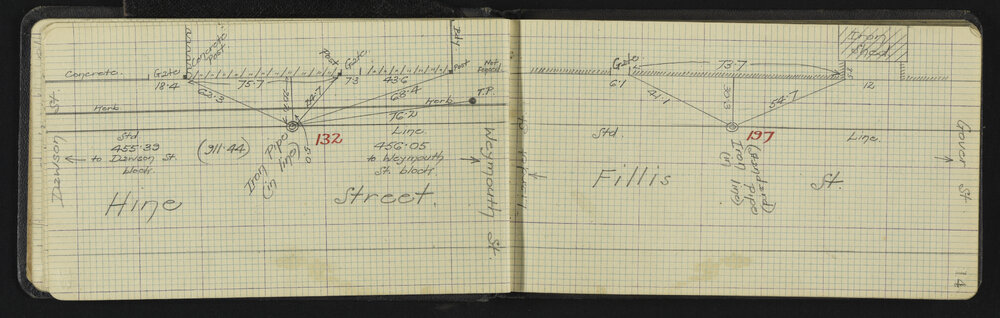 Concrete.
Gate
18.4
Concrete
Post
75.7
Post
Gate
7.3
43.6
Post
Bdy.
Not
Fenced
62.3
24.7
66.4
Kerb
Kerb
T.P.
76.2
5.0
Dawson St.
Std
455.39
to Dawson St.
block.
(911.44)
Iron Pipe
(in line)
132
Line.
456.05
to Weymouth
St. block.
Weymouth St.
Hine Street.
Iron
Shed
Gate
6.1
73.7
12
41.1
30.3
54.7
Std.
197
Line.
Iron pipe
(standard)
(in line)
Fillis St.
Gover St.
14